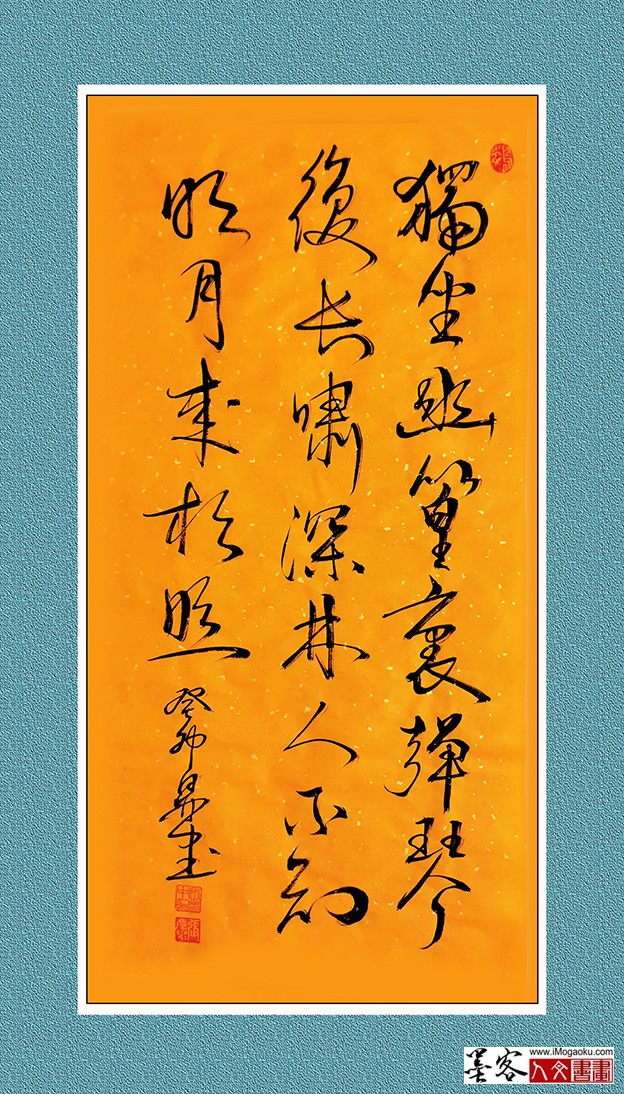 獨坐幽篁裏彈琴
復长嘯深林人不知
明月来相照
癸卯
墨客
www.iMogaoku.com
人文書畫